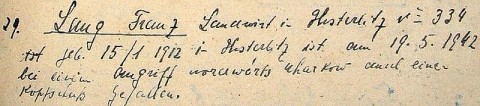 29. Lang Franz Landwirt in Hosterlitz N= 334
ist geb. 15/1 1912 in Hosterlitz ist am 19.5.1942
bei einem Angriff nordwärts Charkow durch einen
Kopfschuß gefallen.